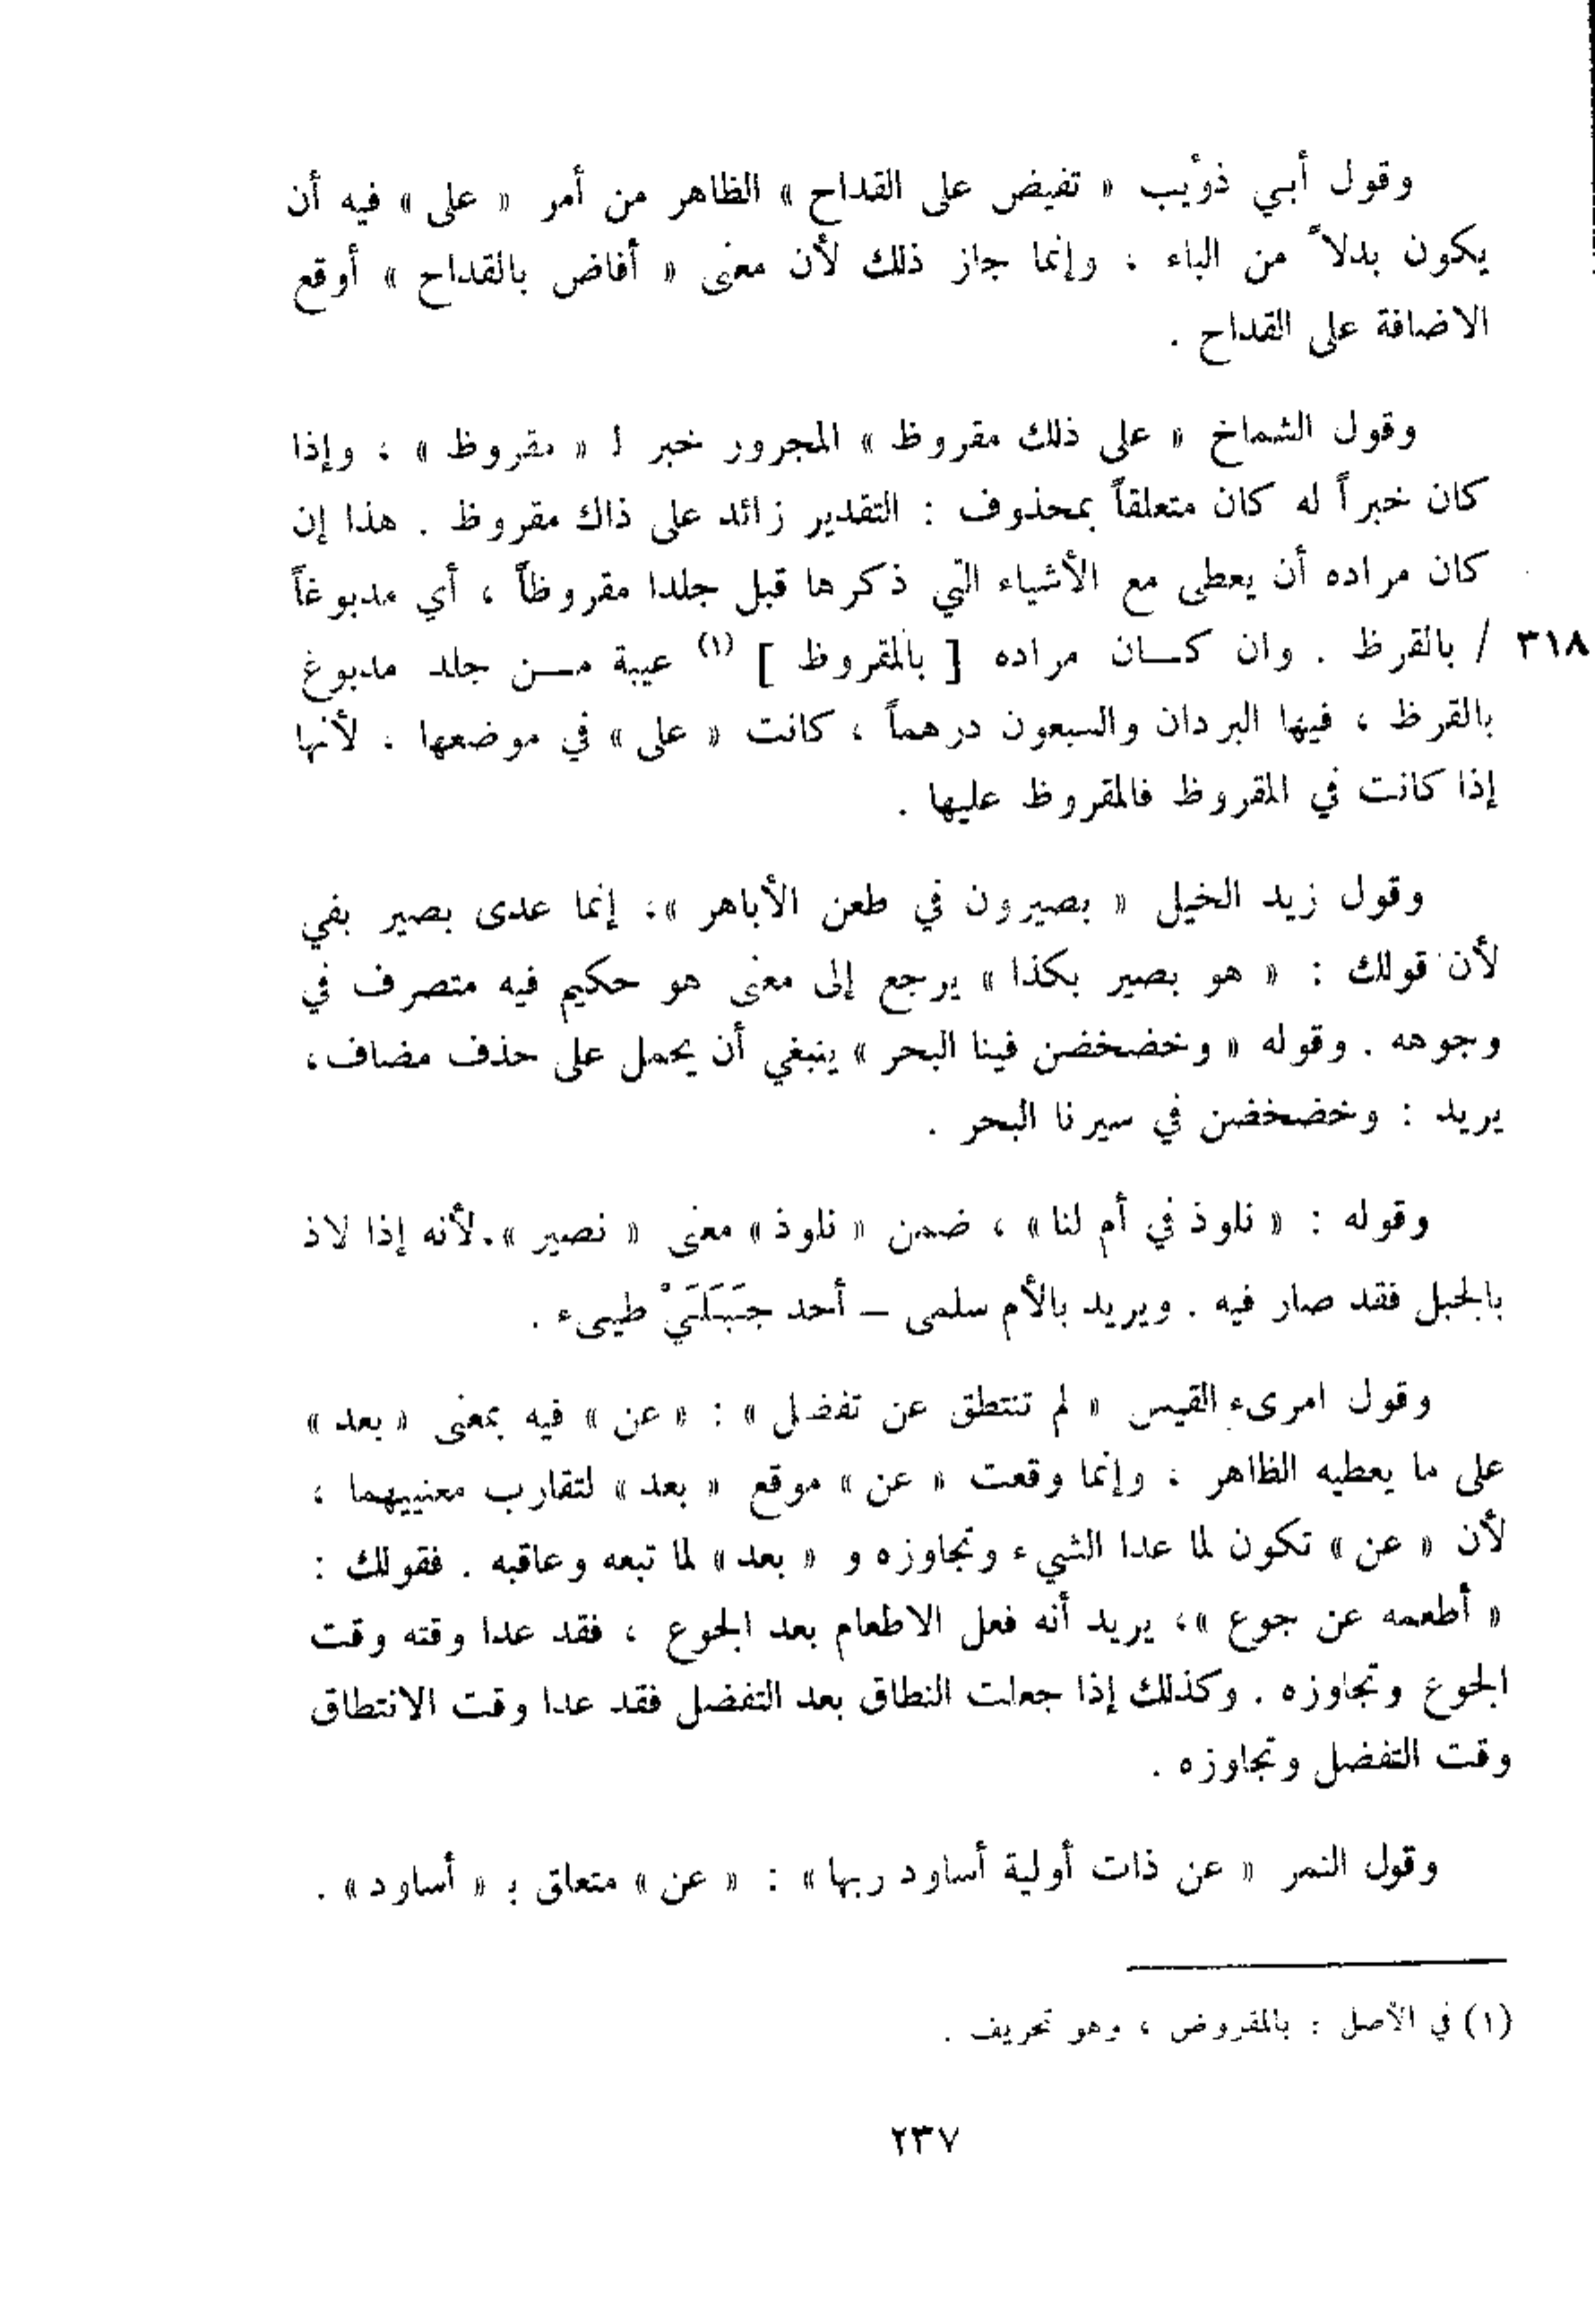 وقول أبي ذؤيب « تفيض على القداح » الظاهر من أمر « على » فيه أن
يكون بدلاً من الباء ، وإنما جاز ذلك لأن معنى « أفاض بالقداح » أوقع
الاضافة على القداح .
وقول الشماخ « على ذلك مقروظ » المجرور خبر لـ « مقروظ » ، وإذا
كان خبراً له كان متعلقاً بمحذوف : التقدير زائد على ذاك مقروظ . هذا إن
كان مراده أن يعطى مع الأشياء التي ذكرها قبل جلدا مقروظاً ، أي مدبوغاً
٣١٨ / بالقرظ . وان كـان مراده [ بالمقروظ ] (١) عيبة مـن جلد مدبوغ
بالقرظ ، فيها البردان والسبعون درهماً ، كانت « على » في موضعها ، لأنها
إذا كانت في المقروظ فالمقروظ عليها .
وقول زيد الخيل « بصيرون في طعن الأباهر »، إنما عدى بصير بفي
لأن قولك : « هو بصير بكذا » يرجع إلى معنى هو حكيم فيه متصرف في
وجوهه . وقوله « وخضخضن فينا البحر » ينبغي أن يحمل على حذف مضاف،
يريد : وخضخضن في سيرنا البحر .
وقوله : « نلوذ في أم لنا » ، ضمن « نلوذ » معنى « نصير ».لأنه إذا لاذ
بالجبل فقد صار فيه . ويريد بالأم سلمى – أحد جَبَلَيْ طيىء .
وقول امرىء القيس « لم تنتطق عن تفضل » : « عن » فيه بمعنى « بعد »
على ما يعطيه الظاهر ، وإنما وقعت « عن » موقع « بعد » لتقارب معنييهما ،
لأن « عن » تكون لما عدا الشيء وتجاوزه و « بعد » لما تبعه وعاقبه . فقولك :
« أطعمه عن جوع »، يريد أنه فعل الاطعام بعد الجوع ، فقد عدا وقته وقت
الجوع وتجاوزه . وكذلك إذا جعلت النطاق بعد التفضل فقد عدا وقت الانتطاق
وقت التفضل وتجاوزه .
وقول النمر « عن ذات أولية أساود ربها » : « عن » متعلق بـ « أساود » .
(١) في الأصل : بالمقروض ، وهو تحريف .
٢٣٧